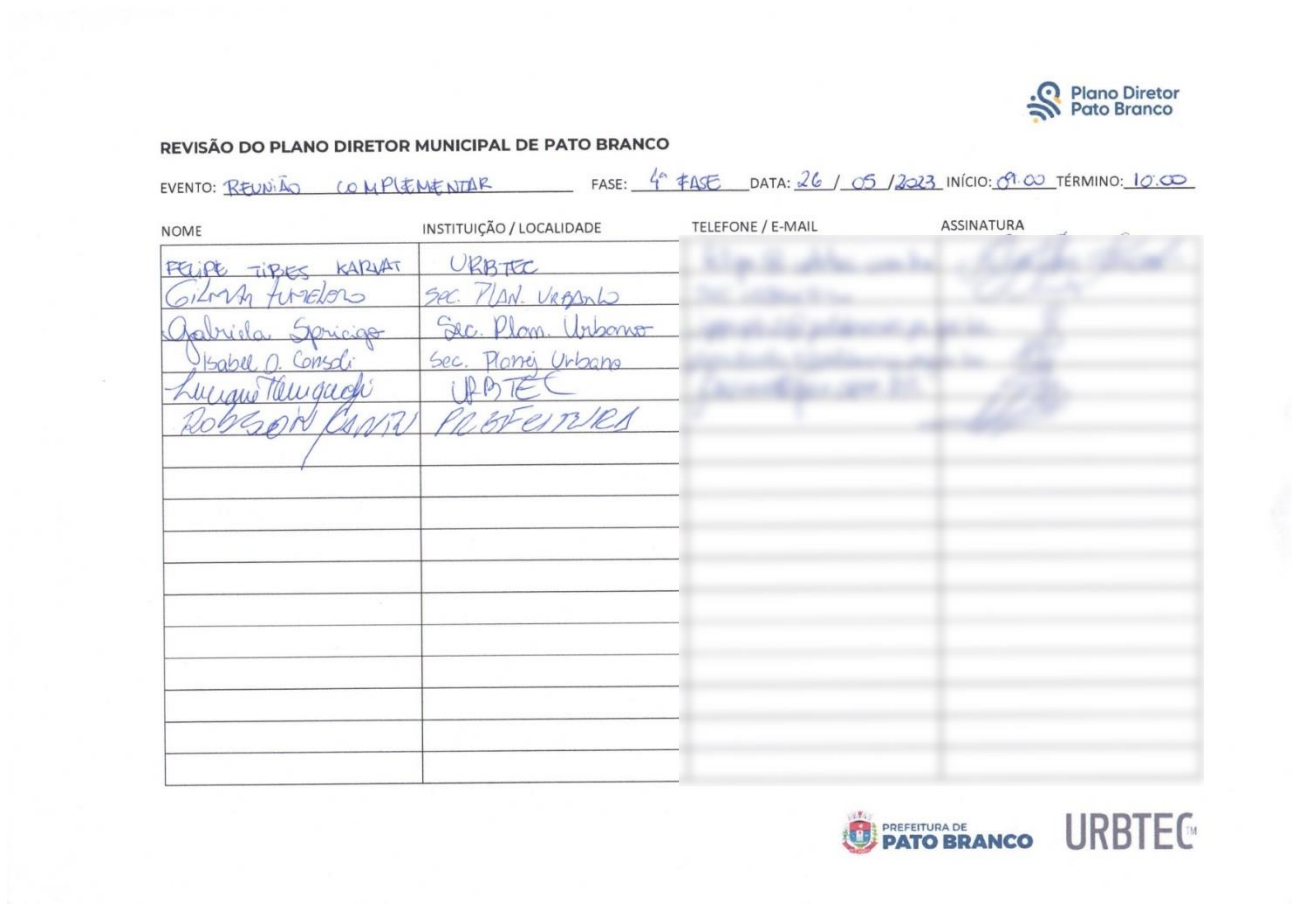 Plano Diretor
Pato Branco
REVISÃO DO PLANO DIRETOR MUNICIPAL DE PATO BRANCO
EVENTO: REUNIÃO COMPLEMENTAR FASE: 4ª FASE DATA: 26 / 05 /2023 INÍCIO: 09:00 TÉRMINO: 10:00
NOME INSTITUIÇÃO / LOCALIDADE TELEFONE / E-MAIL ASSINATURA
FELIPE TIBES KARVAT URBTEC
GILMAR SEC. PLAN. URBANO
Gabriela Spricigo Sec. Plan. Urbano
Isabel D. Consoli Sec. Planej Urbano
URBTEC
ROBSON CANTU PREFEITURA
PREFEITURA DE
PATO BRANCO
URBTEC™